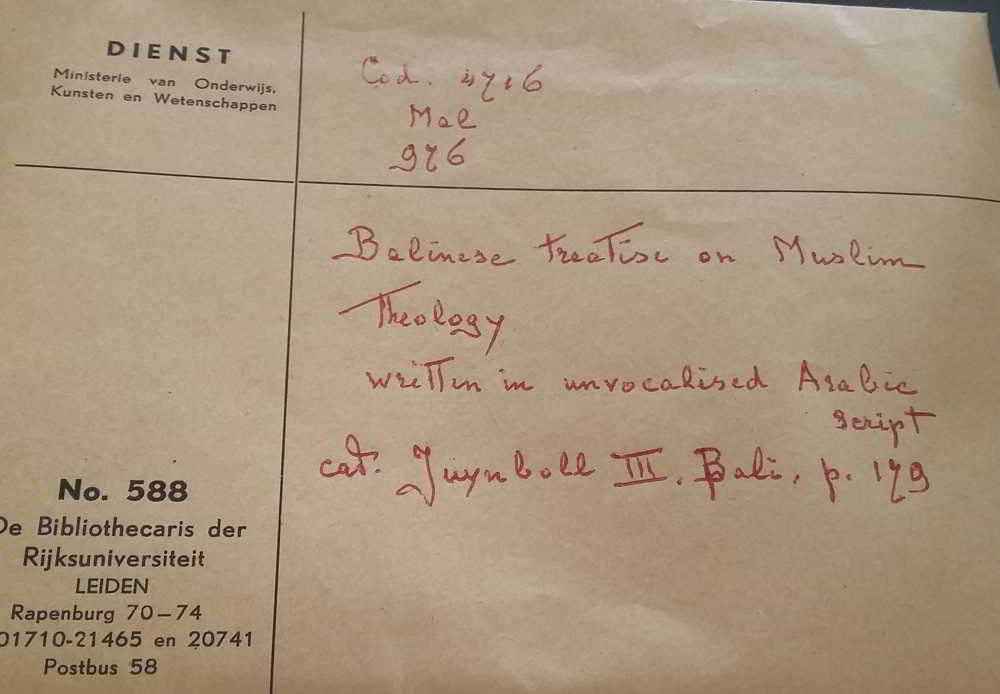 DIENST
Ministerie van Onderwijs,
Kunsten en Wetenschappen
Cod. 4716
Mal
976
Balinese treatise on Muslim
Theology
written in unvocalised Arabic
script
cat. Juynboll III, Bali, p. 179
No. 588
De Bibliothecaris der
Rijksuniversiteit
LEIDEN
Rapenburg 70-74
01710-21465 en 20741
Postbus 58